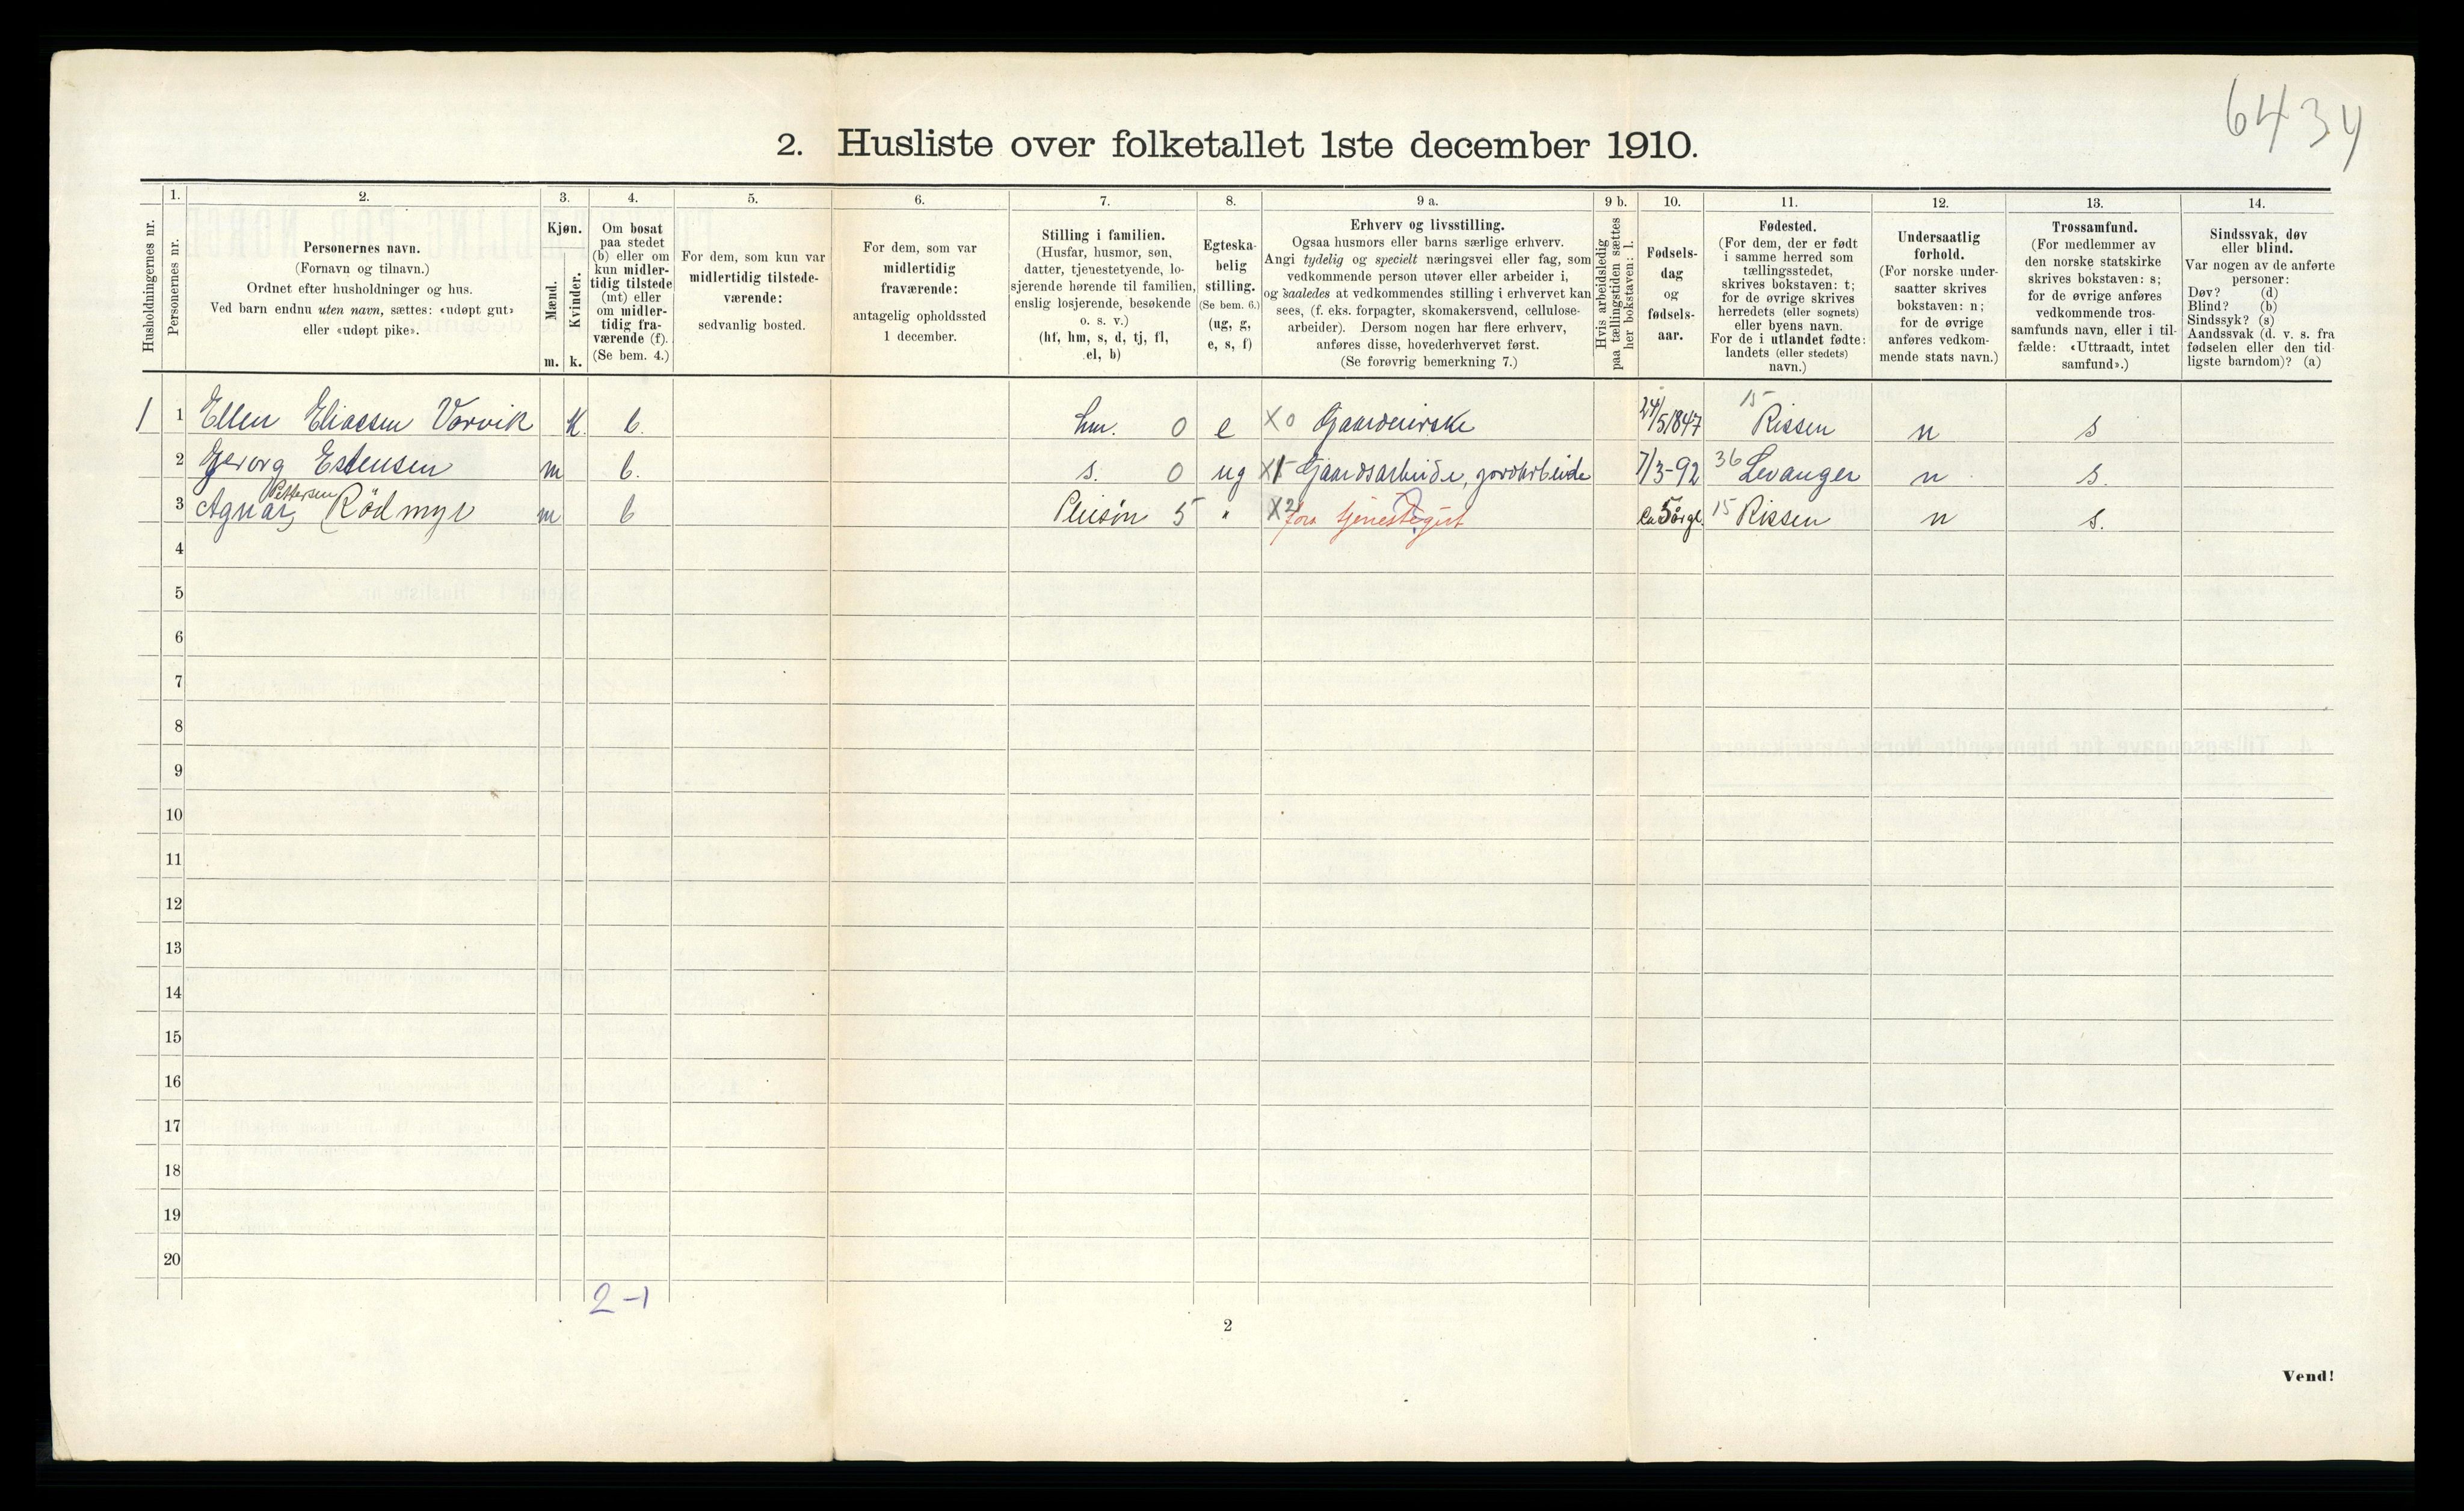 6434
2. Husliste over folketallet 1ste december 1910.
Husholdningernes nr.
1.
Personernes nr.
2.
Personernes navn.
(Fornavn og tilnavn.)
Ordnet efter husholdninger og hus.
Ved barn endnu uten navn, sættes: «udøpt gut»
eller «udøpt pike».
3.
Kjøn.
Mænd.
Kvinder.
m. k.
4.
Om bosat
paa stedet
(b) eller om
kun midler-
tidig tilstede
(mt) eller
om midler-
tidig fra-
værende (f).
(Se bem. 4.)
5.
For dem, som kun var
midlertidig tilstede-
værende:
sedvanlig bosted.
6.
For dem, som var
midlertidig
fraværende:
antagelig opholdssted
1 december.
7.
Stilling i familien.
(Husfar, husmor, søn,
datter, tjenestetyende, lo-
sjerende hørende til familien,
enslig losjerende, besøkende
o. s. v.)
(hf, hm, s, d, tj, fl,
el, b)
8.
Egteska-
belig
stilling.
(Se bem. 6.)
(ug, g,
e, s, f)
9 a.
Erhverv og livsstilling.
Ogsaa husmors eller barns særlige erhverv.
Angi tydelig og specielt næringsvei eller fag, som
vedkommende person utøver eller arbeider i,
og saaledes at vedkommendes stilling i erhvervet kan
sees, (f. eks. forpagter, skomakersvend, cellulose-
arbeider). Dersom nogen har flere erhverv,
anføres disse, hovederhvervet først.
(Se forøvrig bemerkning 7.)
9 b.
Hvis arbeidsledig
paa tællingstiden sættes
her bokstaven: l.
10.
Fødsels-
dag
og
fødsels-
aar.
11.
Fødested.
(For dem, der er født
i samme herred som
tællingsstedet,
skrives bokstaven: t;
for de øvrige skrives
herredets (eller sognets)
eller byens navn.
For de i utlandet fødte:
landets (eller stedets)
navn.)
12.
Undersaatlig
forhold.
(For norske under-
saatter skrives
bokstaven: n;
for de øvrige
anføres vedkom-
mende stats navn.)
13.
Trossamfund.
(For medlemmer av
den norske statskirke
skrives bokstaven: s;
for de øvrige anføres
vedkommende tros-
samfunds navn, eller i til-
fælde: «Uttraadt, intet
samfund».)
14.
Sindssvak, døv
eller blind.
Var nogen av de anførte
personer:
Døv? (d)
Blind? (b)
Sindssyk? (s)
Aandssvak (d. v. s. fra
fødselen eller den tid-
ligste barndom)? (a)
1 1 Ellen Eliassen Vorvik K. b. hm. 0 e X0 Gaardeierske 24/5 1847 15 Rissen n s
2 Georg Estensen m b. s. 0 ug X1 Gaardsarbeide, jordarbeide 7/3-92 36 Levanger n s.
3 Agnar Pettersen Rödmyr m b Pleisön 5 " X2 fors tjenestegut ca 5 årgl. 15 Rissen n s.
4
5
6
7
8
9
10
11
12
13
14
15
16
17
18
19
20
2-1
2
Vend!